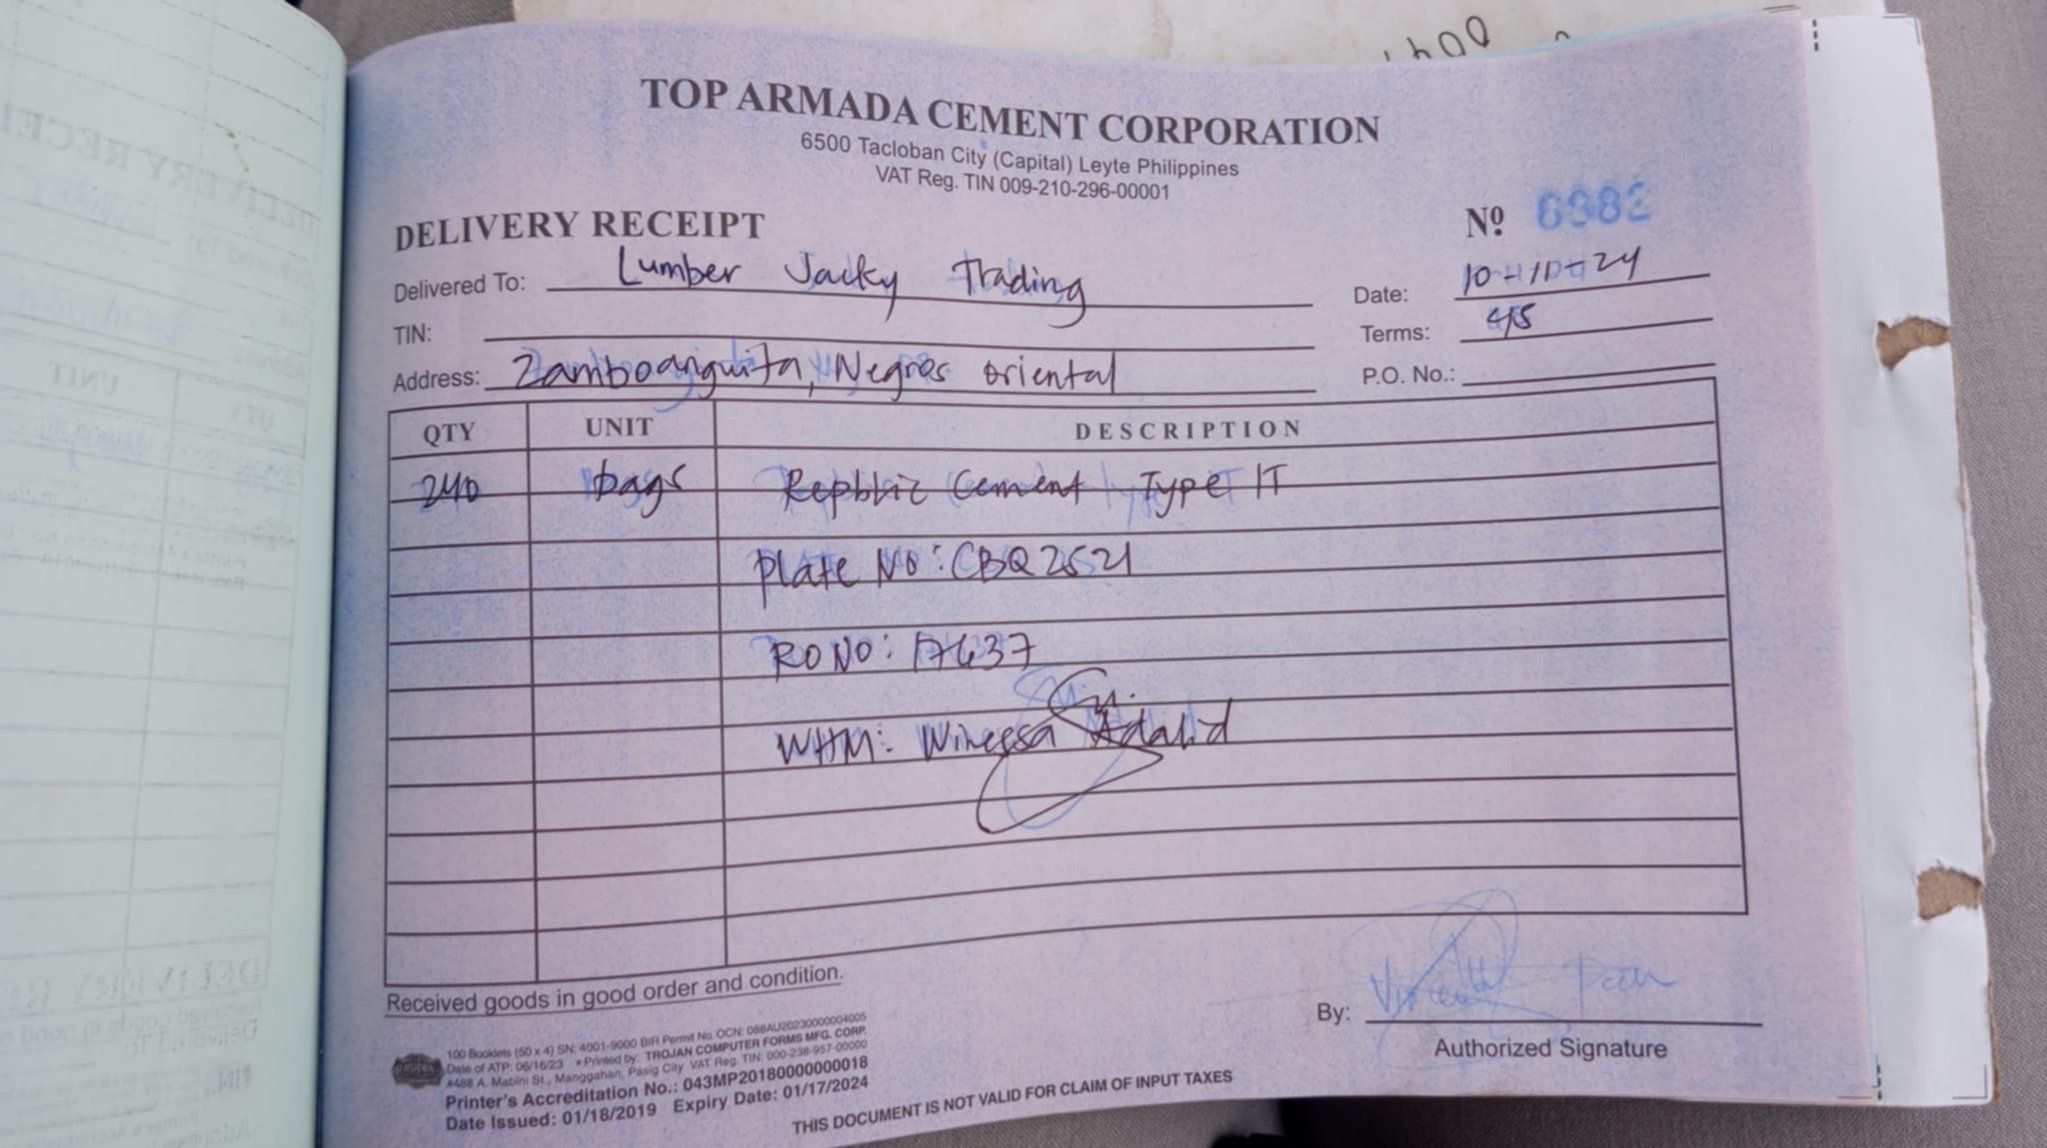 TOP ARMADA CEMENT CORPORATION
6500 Tacloban City (Capital) Leyte Philippines
VAT Reg. TIN 009-210-296-00001
DELIVERY RECEIPT
Nº 6982
Delivered To: Lumber Jacky Trading
Date: 10-10-24
TIN:
Terms: 45
Address: Zamboanguita, Negros Oriental
P.O. No.:
QTY UNIT DESCRIPTION
240 bags Repblic Cement Type IT
Plate No: CBQ 2521
RO NO: 17637
WHM: Winessa Adalid
Received goods in good order and condition.
By:
Authorized Signature
100 Booklets (50 x 4) SN: 4001-9000 BIR Permit No. OCN: 088AU20230000004005
Date of ATP: 06/16/23 • Printed by: TROJAN COMPUTER FORMS MFG. CORP.
#488 A. Mabini St., Manggahan, Pasig City VAT Reg. TIN: 000-238-957-00000
Printer's Accreditation No.: 043MP20180000000018
Date Issued: 01/18/2019 Expiry Date: 01/17/2024
THIS DOCUMENT IS NOT VALID FOR CLAIM OF INPUT TAXES